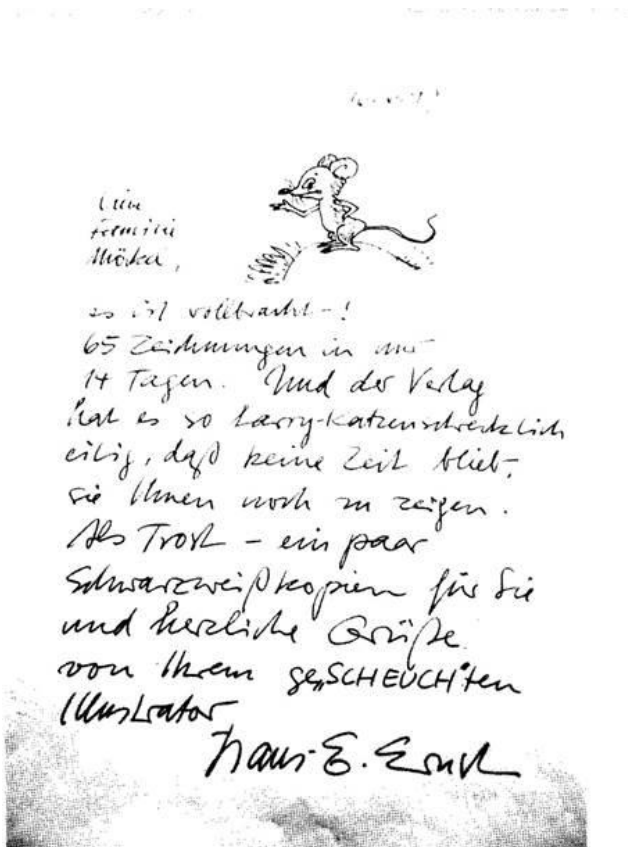 Liebe
Familie
Mörka,
es ist vollbracht-!
65 Zeichnungen in nur
14 Tagen. Und der Verlag
hat es so harry-katzenschrecklich
eilig, daß keine Zeit blieb,
sie Ihnen noch zu zeigen.
Als Trost – ein paar
Schwarzweißkopien für Sie
und herzliche Grüße
von Ihrem ge„SCHEUCH“ten
Illustrator
Hans-E. Ernst